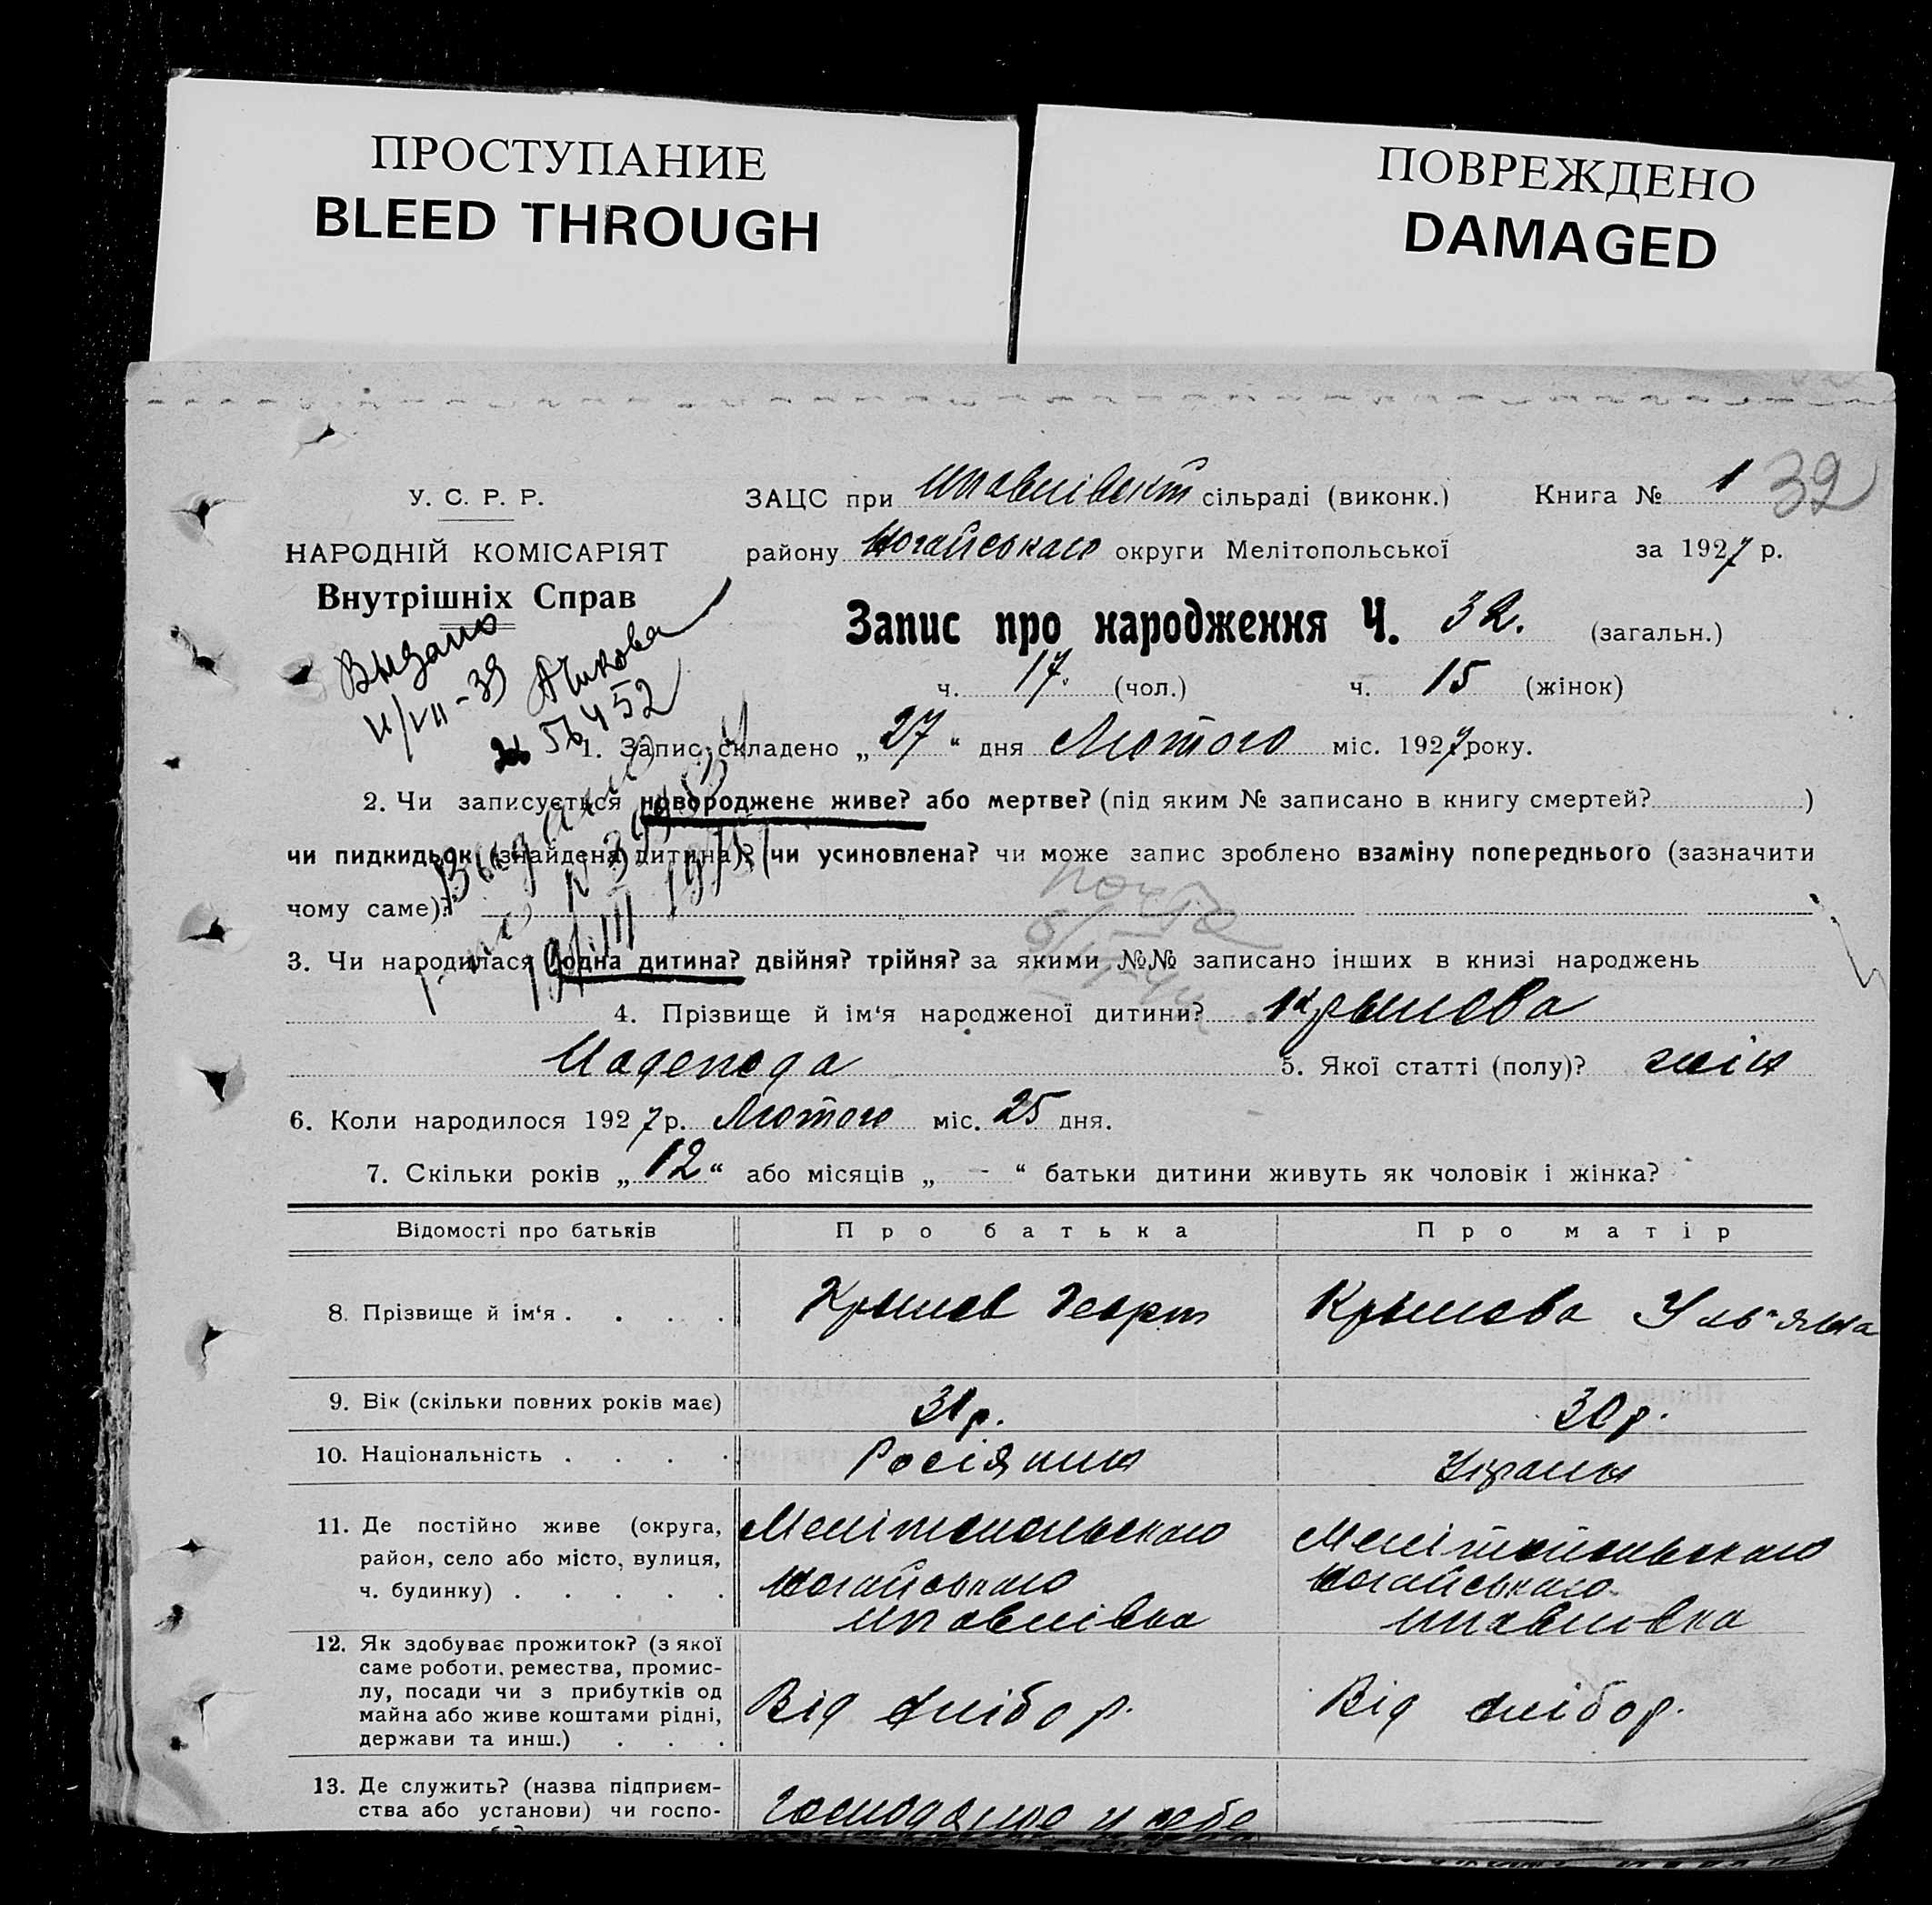 ПРОСТУПАНИЕ
BLEED THROUGH
ПОВРЕЖДЕНО
DAMAGED
У. С. Р. Р.
НАРОДНІЙ КОМІСАРІЯТ
Внутрішніх Справ
ЗАЦС при сільраді (виконк.) Книга № 1 32
району Ногайського округи Мелітопольської за 1927 р.
Запис про народження Ч. 32. (загальн.)
ч. 17. (чол.) ч. 15 (жінок)
Выдано
56452
1. Запис складено „27“ дня Лютого міс. 1927 року.
2. Чи записується новороджене живе? або мертве? (під яким № записано в книгу смертей? )
чи пидкидьок (знайдена дитина)? чи усиновлена? чи може запис зроблено взаміну попереднього (зазначити
чому саме)?
Выдано
3. Чи народилася одна дитина? двійня? трійня? за якими №№ записано інших в книзі народжень
4. Прізвище й ім‘я народженої дитини? Крымова
5. Якої статті (полу)? жін
6. Коли народилося 1927 р. Лютого міс. 25 дня.
7. Скільки років „12“ або місяців „ - “ батьки дитини живуть як чоловік і жінка?
Відомості про батьків Про батька Про матір
8. Прізвище й ім‘я . . . . Крымов Георг Крымова Ул‘яна
9. Вік (скільки повних років має) 31 р. 30 р.
10. Національність . . . . Росіянин Украин
11. Де постійно живе (округа,
район, село або місто, вулиця,
ч. будинку) . . . . .
Мелітопольського
Ногайського
Мелітопольського
Ногайського
12. Як здобуває прожиток? (з якої
саме роботи, ремества, промис-
лу, посади чи з прибутків од
майна або живе коштами рідні,
держави та инш.) . . .
Від хлібор.
Від хлібор.
13. Де служить? (назва підприєм-
ства або установи) чи госпо-